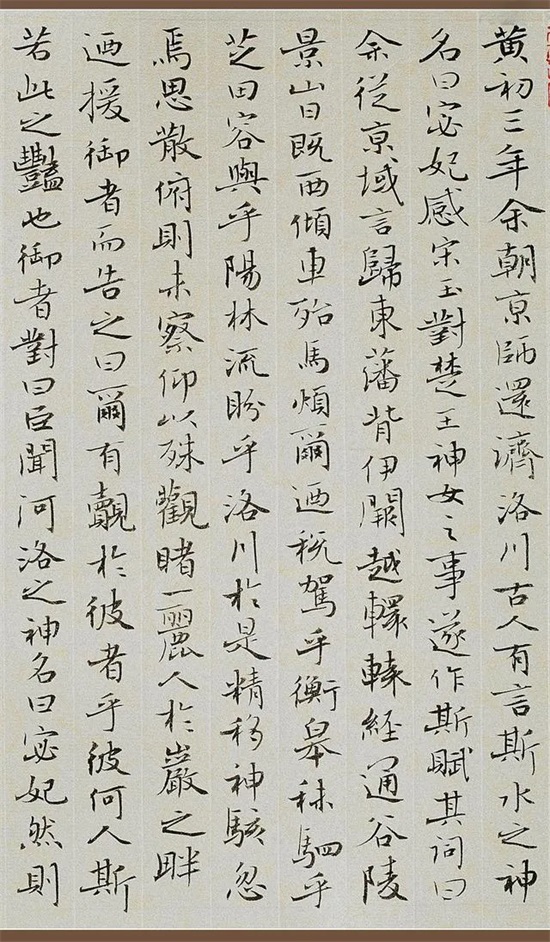 黄初三年余朝京師還濟洛川古人有言斯水之神
名曰宓妃感宋玉對楚王神女之事遂作斯賦其词曰
余從京域言歸東藩背伊闕越轘轅經通谷陵
景山日既西傾車殆馬煩爾迺税駕乎蘅皋秣駟乎
芝田容與乎陽林流盼乎洛川於是精移神駭忽
焉思散俯則未察仰以殊觀睹一麗人於巖之畔
迺援御者而告之曰爾有覿於彼者乎彼何人斯
若此之豔也御者對曰臣聞河洛之神名曰宓妃然則